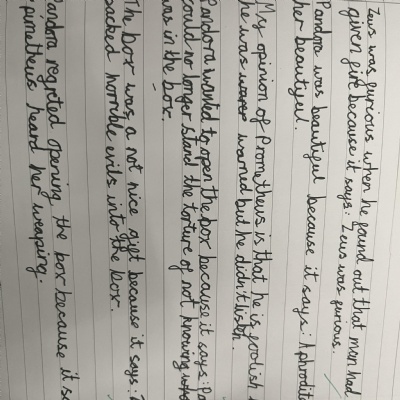 Zeus was furious when he found out that man had
given fire because it says: Zeus was furious.
Pandora was beautiful because it says: Aphrodit
her beautyul.
My opinion of Prometheus is that he is foolish
he was warned but he didn't listen.
Pandora wanted to open the box because it says: Pa
could no longer stand the torture of not knowing
was in the box.
The box was a not nice gift because it says:
packed horrible evils into the box.
Pandora regreted opening the box because it sa
pimetheus heard her weeping.